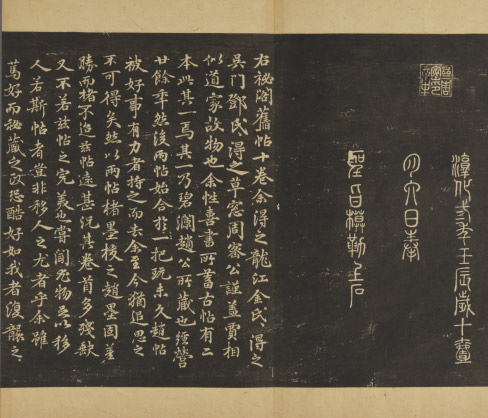 淳化三年壬辰歲十壹
月六日奉
聖旨模勒上石
右祕閣舊帖十卷余得之龍江金氏〻得之
吳門鄧氏〻得之草窓周密公謹蓋賈相
似道家故物也余性喜書所蓄古帖有二
本此其一焉其一乃碧瀾趙公所藏也經營
廿餘年然後兩帖始合於一把玩未久趙帖
被好事有力者持之而去余至今猶追思之
不可得矣然以兩帖楮墨校之趙墨固差
勝而楮不迨茲帖遠甚況其卷首多殘缺
又不若茲帖之完美也嘗聞尤物足以移
人若斯帖者豈非移人之尤者乎余雖
篤好而秘藏之政恐酷好如我者復襲之